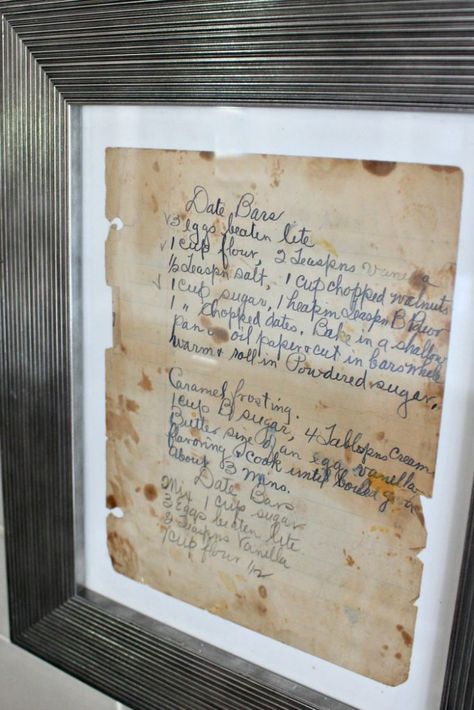 Date Bars
3 eggs beaten lite
1 cup flour, 2 Teaspns vanilla
½ Teaspn salt, 1 cup chopped walnuts
1 cup sugar, 1 heapn Teaspn B Pawr
1 " chopped dates. Bake in a shallow
pan on oil paper & cut in bars while
warm & roll in Powdered sugar.
Caramel frosting.
1 cup B sugar, 4 Tablspns Cream
Butter size of an egg, vanilla
flavoring, cook until boiled good
about 3 mins.
Date Bars
Mix 1 cup sugar
3 Eggs beaten lite
2 Teaspns Vanilla
1 cup flour ½